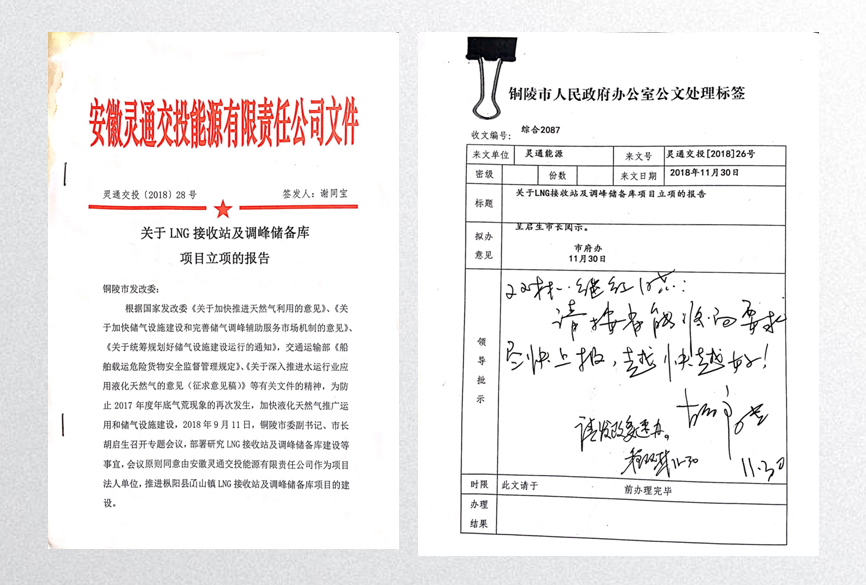 安徽灵通交投能源有限责任公司文件
灵通交投〔2018〕28 号 签发人：谢同宝
关于 LNG 接收站及调峰储备库
项目立项的报告
铜陵市发改委：
根据国家发改委《关于加快推进天然气利用的意见》、《关
于加快储气设施建设和完善储气调峰辅助服务市场机制的意见》、
《关于统筹规划好储气设施建设运行的通知》，交通运输部《船
舶载运危险货物安全监督管理规定》、《关于深入推进水运行业应
用液化天然气的意见（征求意见稿）》等有关文件的精神，为防
止 2017 年度年底气荒现象的再次发生，加快液化天然气推广运
用和储气设施建设，2018 年 9 月 11 日，铜陵市委副书记、市长
胡启生召开专题会议，部署研究 LNG 接收站及调峰储备库建设等
事宜，会议原则同意由安徽灵通交投能源有限责任公司作为项目
法人单位，推进枞阳县凸山镇 LNG 接收站及调峰储备库项目的建
设。
铜陵市人民政府办公室公文处理标签
收文编号： 综合2087
来文单位 灵通能源 来文号 灵通交投[2018]26号
密级 份数 来文日期 2018年11月30日
标题 关于LNG接收站及调峰储备库项目立项的报告
拟办意见 呈启生市长阅示。
市府办
11月30日
领导批示
请按省能源局要求
尽快上报，越快越好！
请发改委速办。
11-30
11.30
时限 此文请于 前办理完毕
办理结果